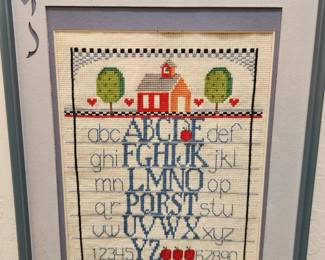 abc ABCDE def
ghi FGHIJK jkl
mn LMNO op
qr PQRST stu
uv UVWX xyz
12345 YZ 67890